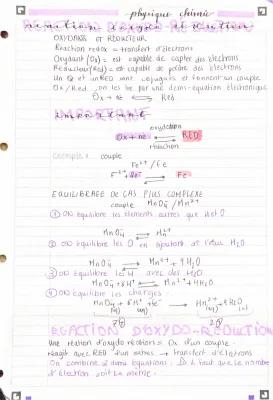 physique chimie
réaction oxydo réduction
OXYDANT ET RÉDUCTEUR
Réaction redox = transfert d'électrons
Oxydant (Ox) = est capable de capter des électrons
Réducteur (Red) = est capable de perdre des électrons
Un Ox et un RED sont conjugués et forment un couple
Ox/Red, on les lie par une demi-équation électronique
Ox + ne ⇌ Red
IMPORTANT
oxydation
Ox + ne ⇌ RED
réduction
Exemple : couple
Fe²⁺/Fe
Fe²⁺ + 2e⁻ ⇌ Fe
EQUILIBRAGE DE CAS PLUS COMPLEXE
couple MnO₄⁻/Mn²⁺
① ON équilibre les éléments autres que H et O
MnO₄⁻ ⇌ Mn²⁺
② ON équilibre les O en ajoutant de l'eau H₂O
MnO₄⁻ ⇌ Mn²⁺ + 4H₂O
③ ON équilibre les H avec des H₂O
MnO₄⁻ + 8H⁺ ⇌ Mn²⁺ + 4H₂O
④ ON équilibre les charges
MnO₄⁻ + 8H⁺ + e⁻ → Mn²⁺ + 4H₂O
(aq) (aq) (aq) (l)
RÉACTION D'OXYDO-RÉDUCTION
Une réaction d'oxydo réduction = Ox d'un couple
réagit avec RED d'un autre → transfert d'électrons
On combine 2 demi équations. Il faut que le nombre
d'électron soit la même.